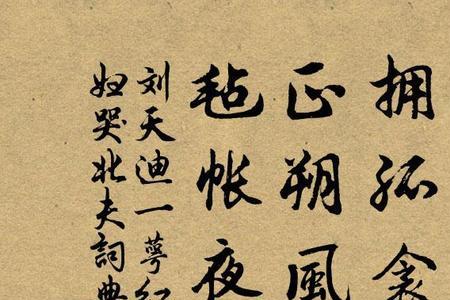 拥孤衾
正朔風
毡帐夜
刘天迪一萼红
妇哭北夫詞典